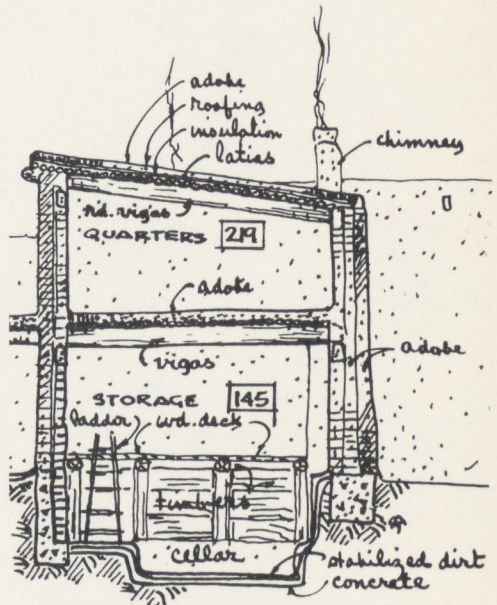 adobe
roofing
insulation
latias
chimney
rd. vigas
QUARTERS 219
adobe
vigas
adobe
STORAGE 145
laddor wd. deck
timbers
cellar
stabilized dirt
concrete